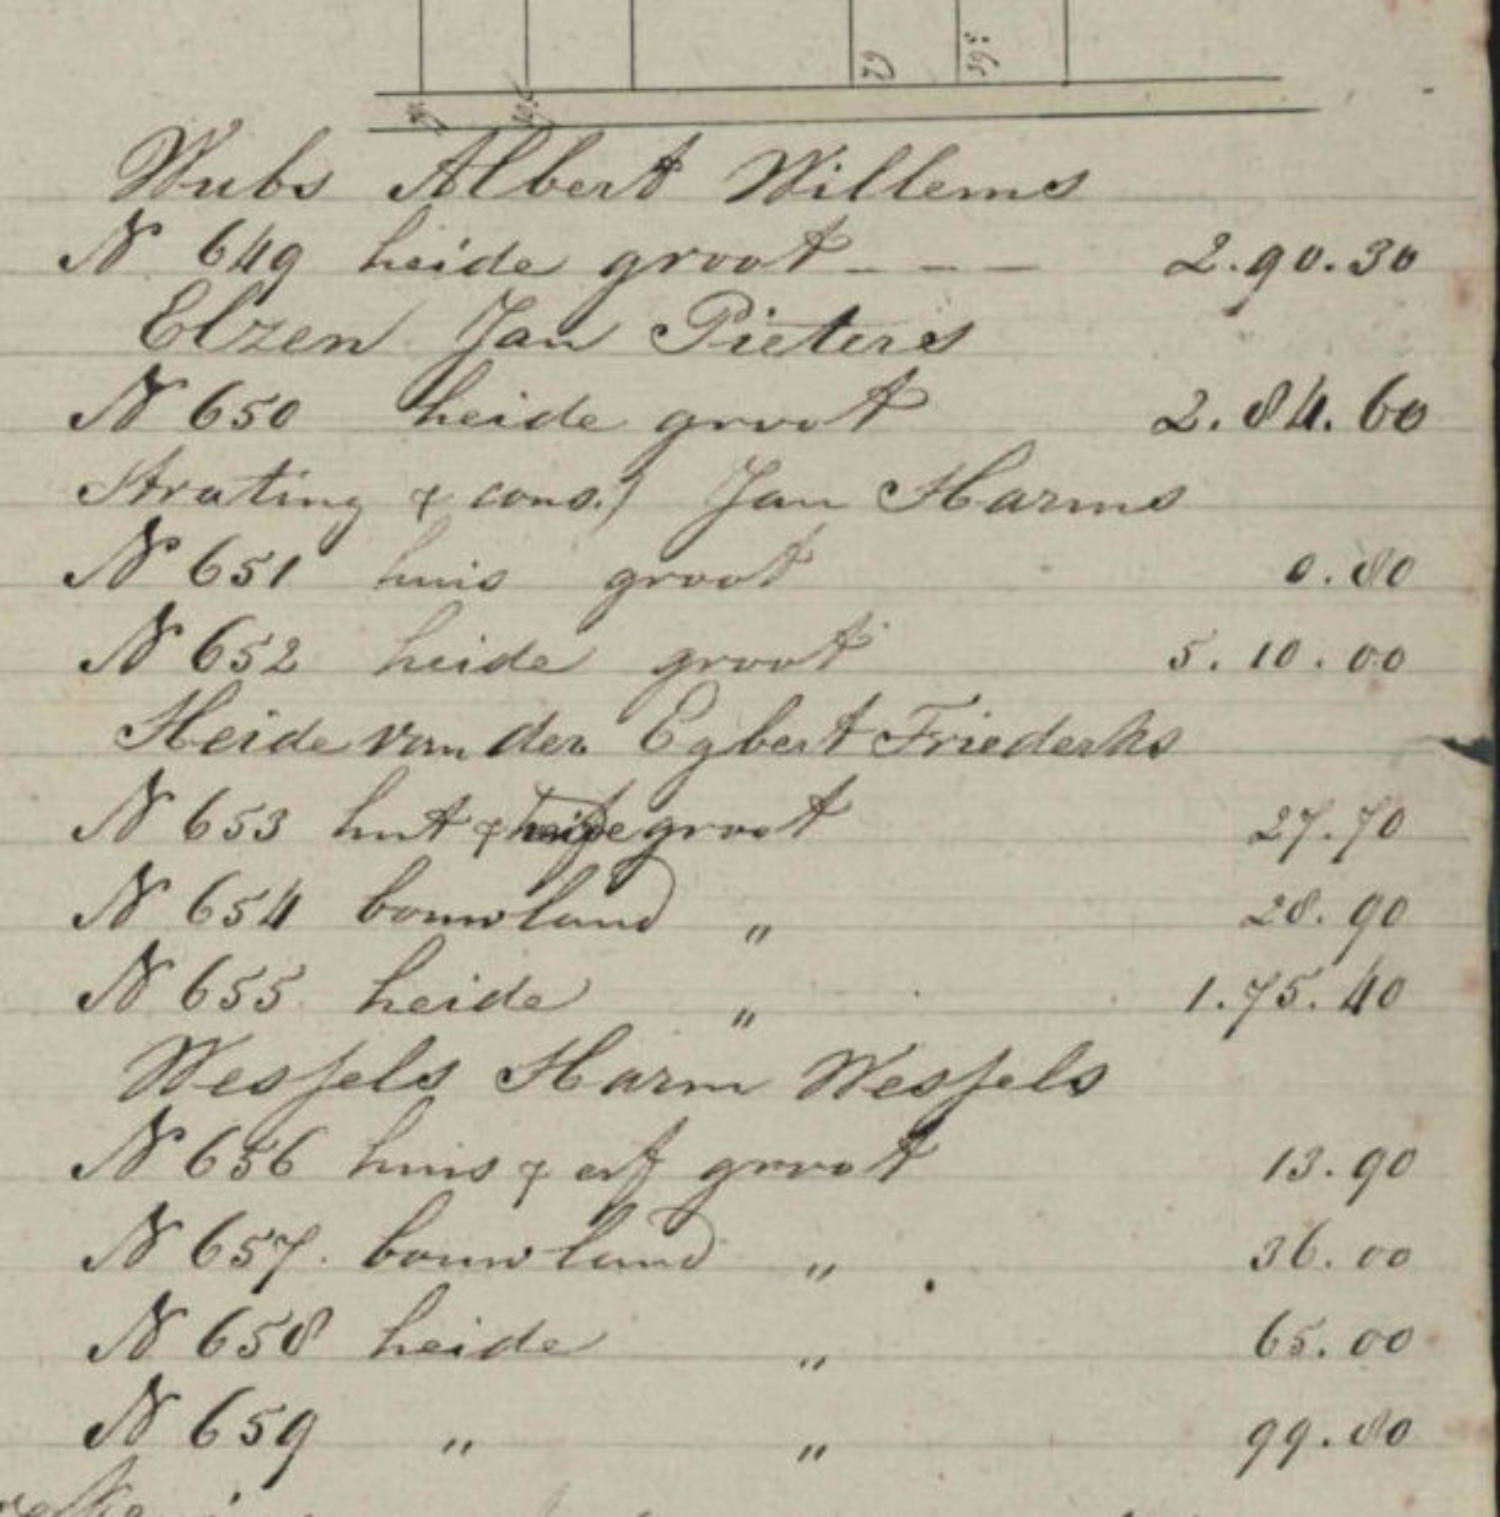 Wubs Albert Willems
N 649 heide groot - - - 2.90.30
Elzen Jan Pieters
N 650 heide groot 2.84.60
Strating & cons.) Jan Harms
N 651 huis groot 0.80
N 652 heide groot 5.10.00
Heide van der Egbert Friederks
N 653 hut & groot 27.70
N 654 bouwland " 28.90
N 655 heide " 1.75.40
Wessels Harm Wessels
N 656 huis & erf groot 13.90
N 657. bouwland " 36.00
N 658 heide " 65.00
N 659 " " 99.80